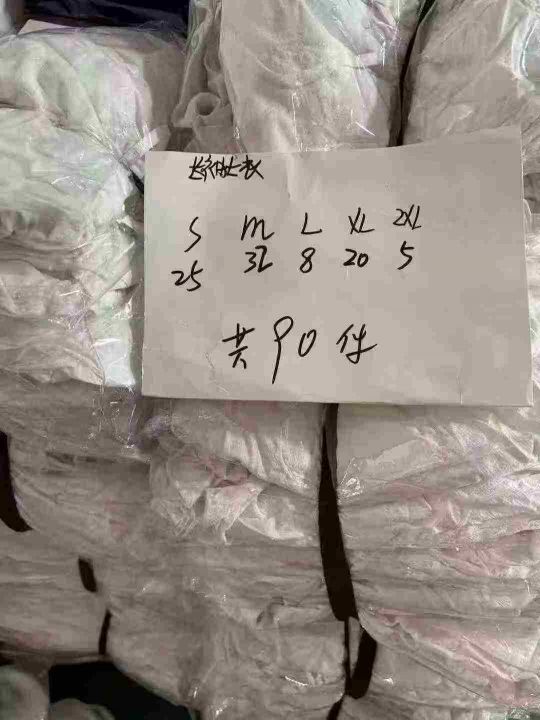 长袖上衣
S M L XL 2XL
25 32 8 20 5
共90件